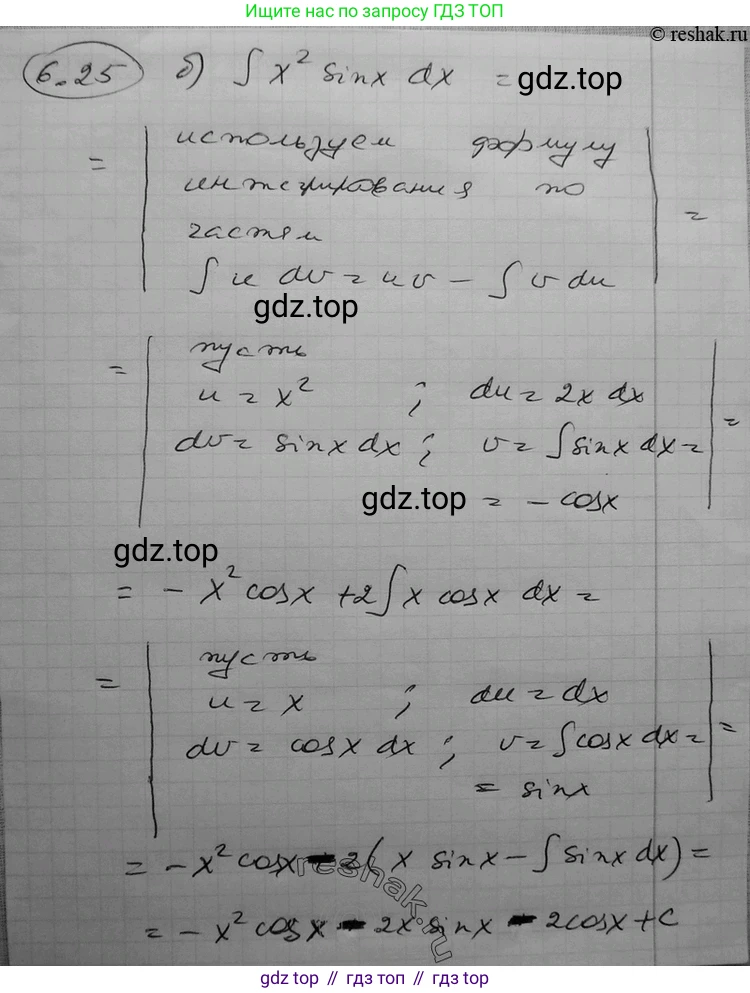 Ищите нас по запросу ГДЗ ТОП
© reshak.ru
6.25 б) ∫ x² sinx dx =
gdz.top
= | используем формулу
интегрирования по
частям
∫ u dv = uv - ∫ v du | =
gdz.top
= | пусть
u = x² ; du = 2x dx
dv = sinx dx ; v = ∫ sinx dx =
= - cosx | =
gdz.top
gdz.top
= - x² cosx + 2∫ x cosx dx =
= | пусть
u = x ; du = dx
dv = cosx dx ; v = ∫ cosx dx =
= sinx | =
= - x² cosx - 2( x sinx - ∫ sinx dx) =
reshak.ru
= - x² cosx - 2x sinx - 2cosx + C
gdz.top // гдз топ // gdz.top